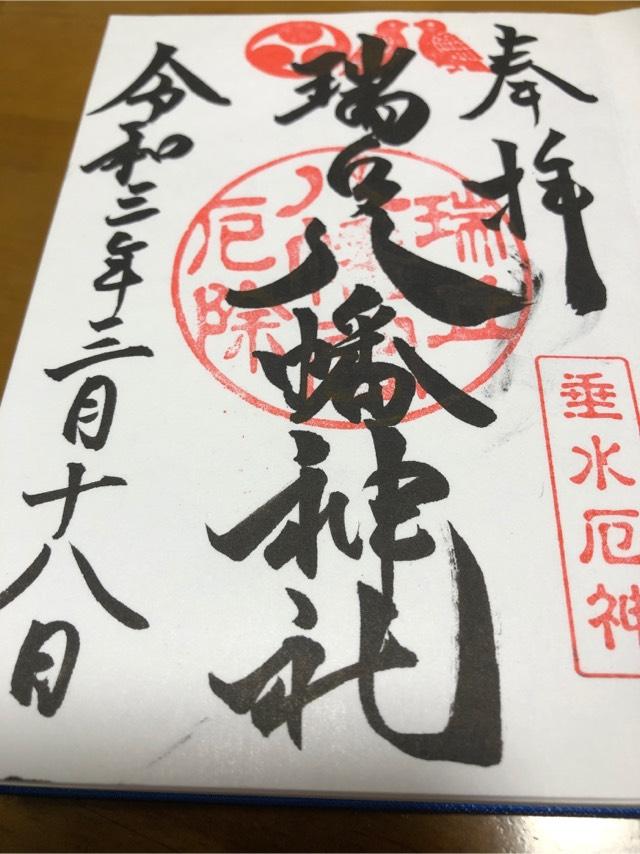 奉拝
垂水厄神
瑞丘八幡神社
瑞丘
八幡神社
厄除
令和三年三月十八日